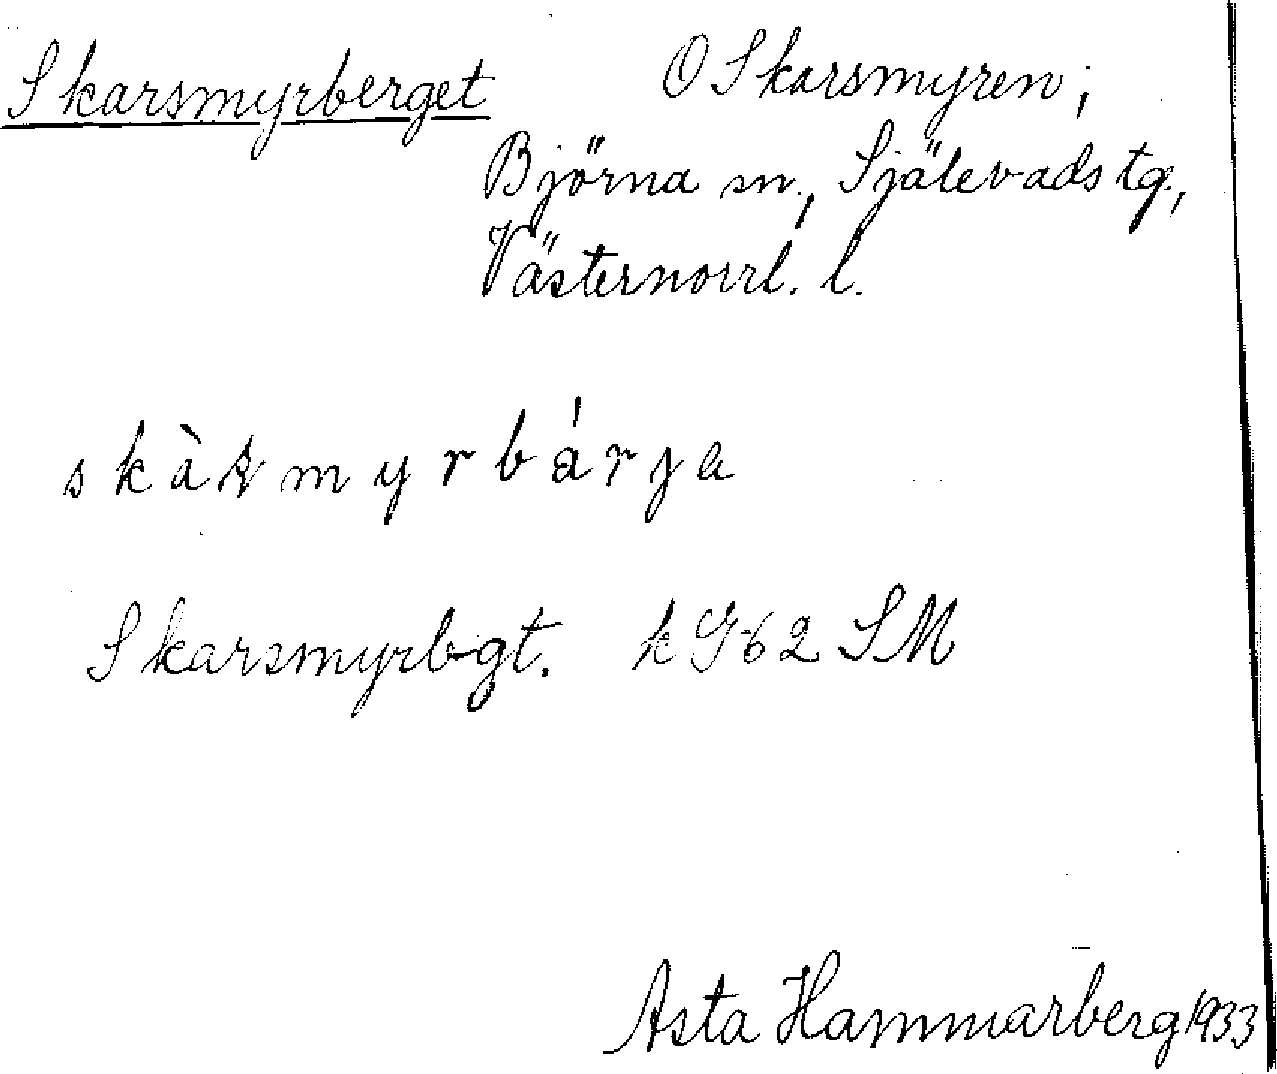 Skarsmyrberget O Skarsmyren;
Björna sn, Själevads tg.,
Västernorrl. l.
skàʂmyrbárja
Skarsmyrbgt. k G 62 SM
Asta Hammarberg 1933